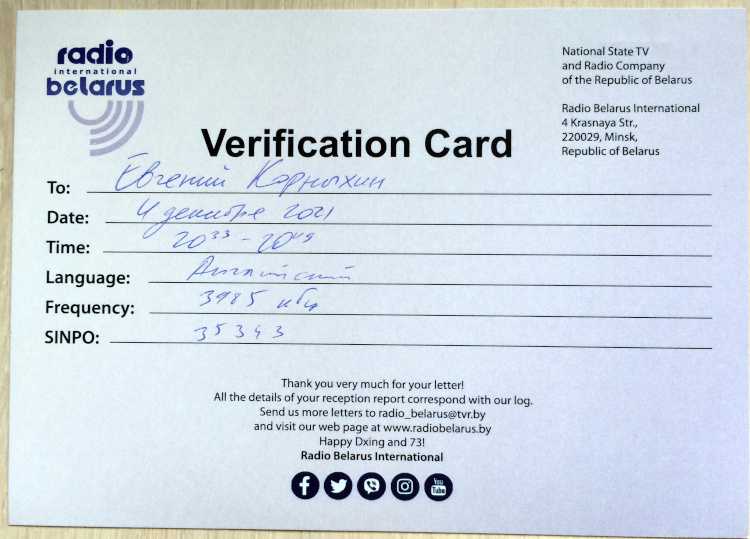 radio
international
belarus
National State TV
and Radio Company
of the Republic of Belarus
Radio Belarus International
4 Krasnaya Str.,
220029, Minsk,
Republic of Belarus
Verification Card
To: Евгений Корныхин
Date: 4 декабря 2021
Time: 20³³ - 20⁴⁹
Language: Английский
Frequency: 3985 кГц
SINPO: 35343
Thank you very much for your letter!
All the details of your reception report correspond with our log.
Send us more letters to radio_belarus@tvr.by
and visit our web page at www.radiobelarus.by
Happy Dxing and 73!
Radio Belarus International
You
Tube